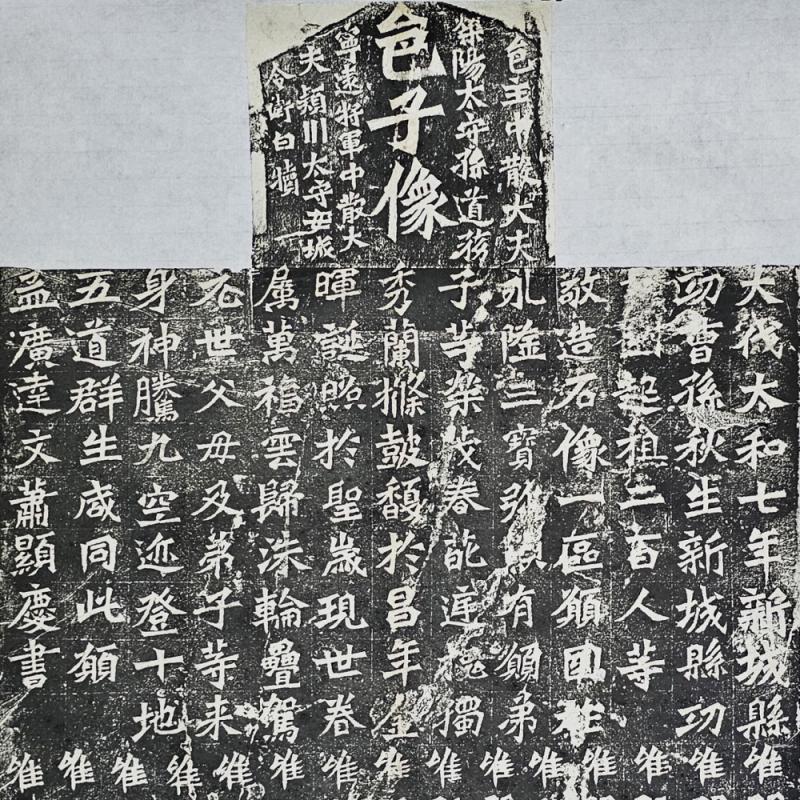 邑主中散大夫
滎陽太守孫道務
邑子像
寧遠將軍中散大
夫潁川太守安城
令衛白犢
大伐太和七年新城縣
功曹孫秋生新城縣功
曹劉起祖二百人等
敬造石像一區願國祚
永隆三寶弥顯有願弟
子等榮茂春葩庭槐獨
秀蘭條鼓馥於昌年金
暉誕照於聖歲現世眷
屬萬福雲歸洙輪疊駕
元世父母及弟子等来
身神騰九空迹登十地
五道群生咸同此願
孟廣達文蕭顯慶書
維維維維維維維維維維維維維維維